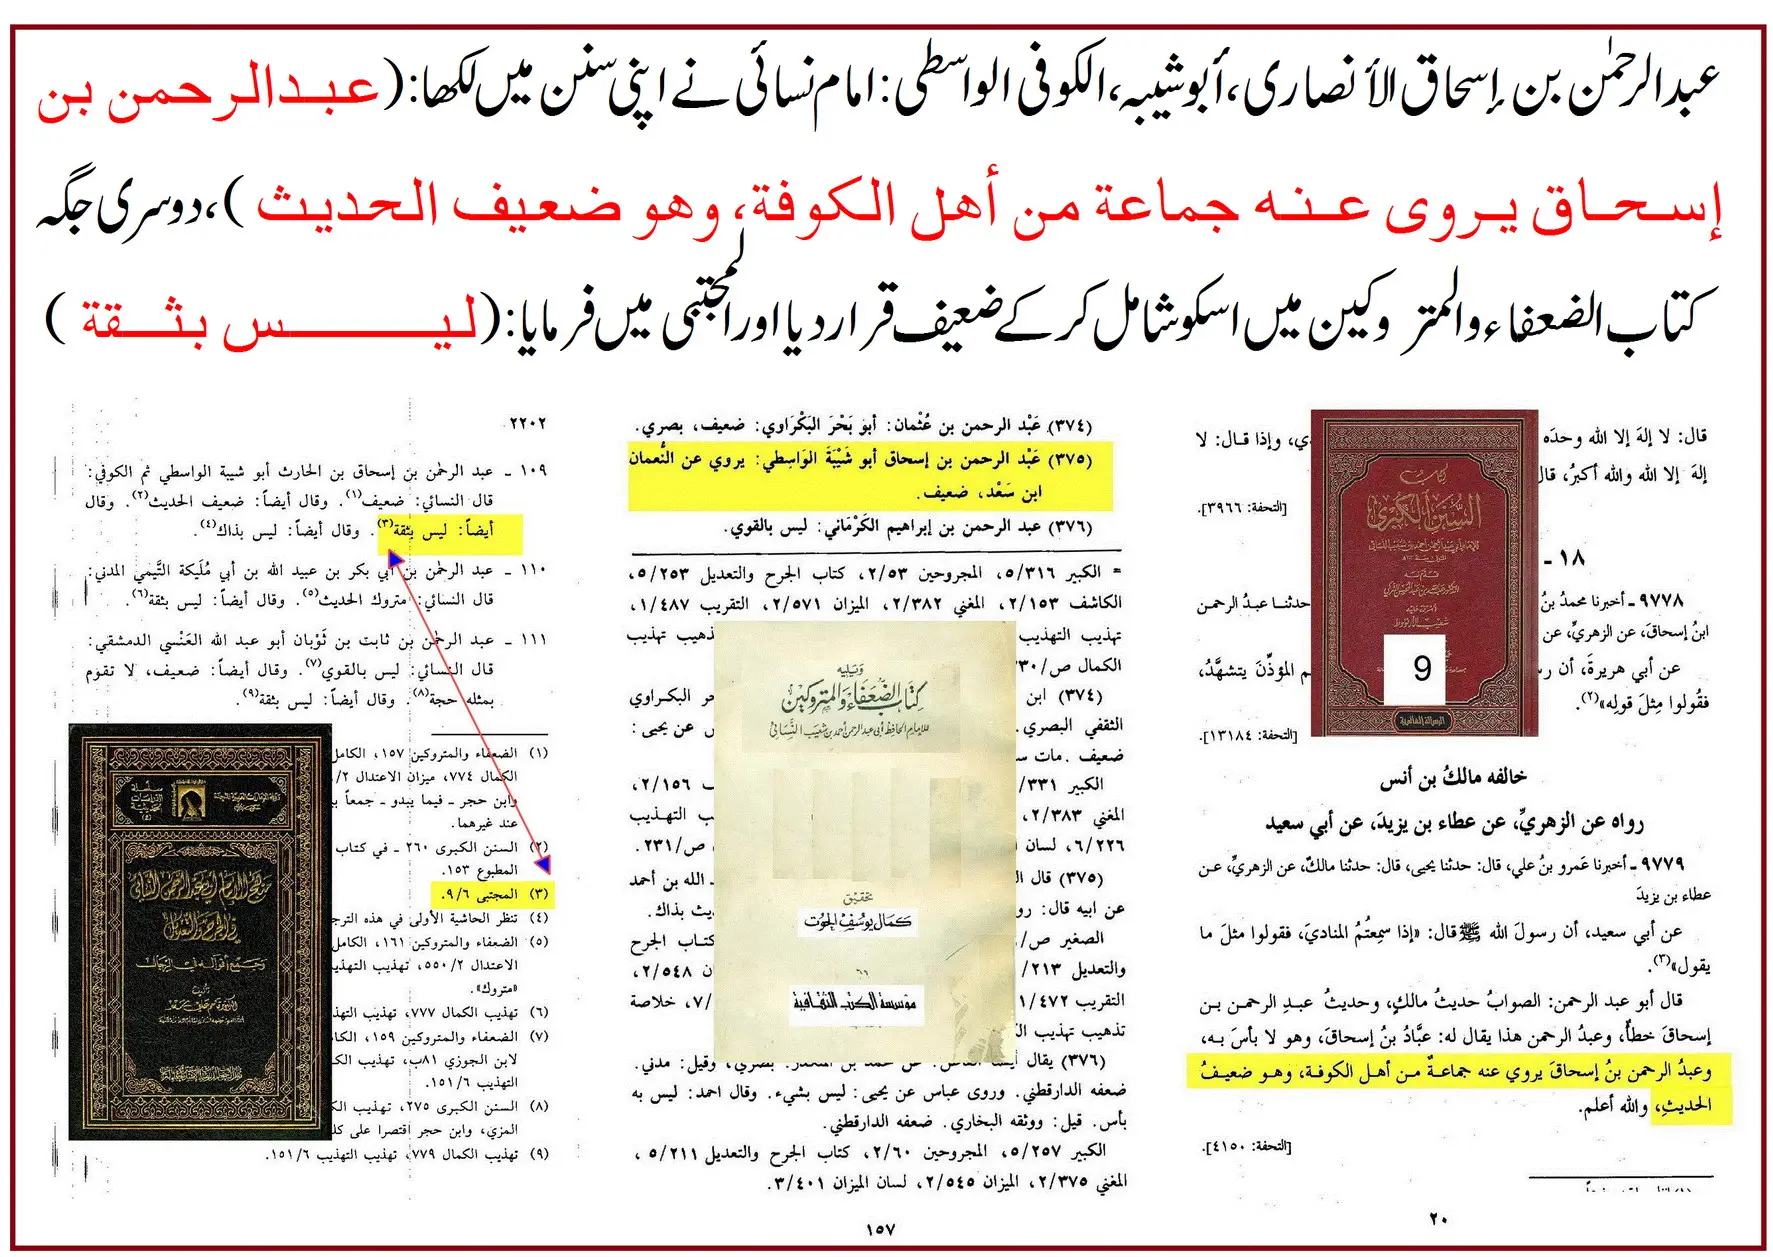 عبدالرحمٰن بن إسحاق الأنصاری، أبو شیبہ، الکوفی الواسطی: امام نسائی نے اپنی سنن میں لکھا: (عبدالرحمن بن
إسحاق يروى عنه جماعة من أهل الكوفة، وهو ضعيف الحديث)، دوسری جگہ
کتاب الضعفاء والمتروکین میں اسکو شامل کر کے ضعیف قرار دیا اور المجتبیٰ میں فرمایا: (ليس بثقة)
قال: لا إلهَ إلا الله وحدَه
دي، وإذا قال: لا
إلهَ إلا الله والله أكبرُ، قال
[التحفة: ٣٩٦٦].
١٨ -
٩٧٧٨ - أخبرنا محمدُ بنُ
حدثنا عبدُ الرحمن
ابنُ إسحاقَ، عن الزهريِّ، عن
عن أبي هريرةَ، أن رس
م المؤذِّنَ يتشهَّدُ،
فقُولوا مِثلَ قولِه»(٢).
[التحفة: ١٣١٨٤].
خالفه مالكُ بن أنس
رواه عن الزهريِّ، عن عطاء بن يزيدَ، عن أبي سعيد
٩٧٧٩ - أخبرنا عَمرو بنُ علي، قال: حدثنا يحيى، قال: حدثنا مالكٌ، عن الزهريِّ، عن
عطاء بن يزيدَ
عن أبي سعيد، أن رسولَ الله ﷺ قال: «إذا سمِعتُمُ المناديَ، فقولوا مثلَ ما
يقول»(٣).
قال أبو عبد الرحمن: الصوابُ حديثُ مالكٍ، وحديثُ عبدِ الرحمن بن
إسحاقَ خطأٌ، وعبدُ الرحمن هذا يقال له: عبَّادُ بنُ إسحاقَ، وهو لا بأسَ به،
وعبدُ الرحمن بنُ إسحاقَ يروي عنه جماعةٌ من أهل الكوفة، وهو ضعيفُ
الحديثِ، والله أعلم.
[التحفة: ٤١٥٠].
٢٠
كتاب
السنن الكبرى
9
(٣٧٤) عَبْد الرحمن بن عُثْمان: أبو بَحْرَ البَكْرَاوي: ضعيف، بصري.
(٣٧٥) عَبْد الرحمن بن إسحاق أبو شَيْبَةَ الوَاسِطي: يروي عن النُّعمان
ابن سَعْد، ضعيف.
(٣٧٦) عبد الرحمن بن إبراهيم الكَرْمَاني: ليس بالقوي.
= الكبير ٥/٣١٦، المجروحين ٢/٥٣، كتاب الجرح والتعديل ٥/٢٥٣،
الكاشف ٢/١٥٣، المغني ٢/٣٨٢، الميزان ٢/٥٧١، التقريب ١/٤٨٧،
تهذيب التهذيب
ذهيب تهذيب
الكمال ص/
(٣٧٤) ابن
حر البكراوي
الثقفي البصري.
عن يحيى:
ضعيف. مات س
الكبير ٣٣١/
٢/١٥٦،
المغني ٢/٣٨٣،
ب التهذيب
٦/٢٢٦، لسان
ص/٢٣١.
(٣٧٥) قال ال
الله بن أحمد
عن ابيه قال: رو
يث بذاك.
الصغير ص/
كتاب الجرح
والتعديل ٢١٣/
ن ٢/٥٤٨،
التقريب ١/٤٧٢
خلاصة
تذهيب تهذيب الك
ويليه
كتاب الضعفاء والمتروكين
للإمام الحافظ أبي عبد الرحمن أحمد بن شعيب النسائي
تحقيق
كمال يوسف الحوت
مؤسسة الكتب الثقافية
(٣٧٦) يقال
بصري، وقيل: مدني.
ضعفه الدارقطني. وروى عباس عن يحيى: ليس بشيء. وقال احمد: ليس به
بأس. قيل: ووثقه البخاري. ضعفه الدارقطني.
الكبير ٥/٢٥٧، المجروحين ٢/٦٠، كتاب الجرح والتعديل ٥/٢١١،
المغني ٢/٣٧٥، الميزان ٢/٥٤٥، لسان الميزان ٣/٤٠١.
١٥٧
٢٢٠٢
١٠٩ - عبد الرحمٰن بن إسحاق بن الحارث أبو شيبة الواسطي ثم الكوفي:
قال النسائي: ضعيف(١). وقال أيضاً: ضعيف الحديث(٢). وقال
أيضاً: ليس بثقة(٣). وقال أيضاً: ليس بذاك(٤).
١١٠ - عبد الرحمٰن بن أبي بكر بن عبيد الله بن أبي مُلَيكة التَّيمي المدني:
قال النسائي: متروك الحديث(٥). وقال أيضاً: ليس بثقة(٦).
١١١ - عبد الرحمٰن بن ثابت بن ثَوْبان أبو عبد الله العَنْسي الدمشقي:
قال النسائي: ليس بالقوي(٧). وقال أيضاً: ضعيف، لا تقوم
بمثله حجة(٨). وقال أيضاً: ليس بثقة(٩).
(١) الضعفاء والمتروكين ١٥٧، الكامل
الكمال ٧٧٤، ميزان الاعتدال ٢/
وابن حجر - فيما يبدو - جمعاً بي
عند غيرهما.
(٢) السنن الكبرى ٢٦٠ - في كتاب
المطبوع ١٥٣.
(٣) المجتبى ٩/٦.
(٤) تنظر الحاشية الأولى في هذه الترج
(٥) الضعفاء والمتروكين ١٦١، الكامل
الاعتدال ٢/٥٥٠، تهذيب التهذيـ
«متروك».
(٦) تهذيب الكمال ٧٧٧، تهذيب التهذ
(٧) الضعفاء والمتروكين ١٥٩، الكاما
لابن الجوزي ٨١ب، تهذيب الك
التهذيب ٦/١٥١.
(٨) السنن الكبرى ٢٧٥، تهذيب الك
المزي، وابن حجر اقتصرا على كلـ
(٩) تهذيب الكمال ٧٧٩، تهذيب التهذيب ٦/١٥١.
منهج الإمام أبي عبد الرحمن النسائي
في الجرح والتعديل
وجمع أقواله في الرجال